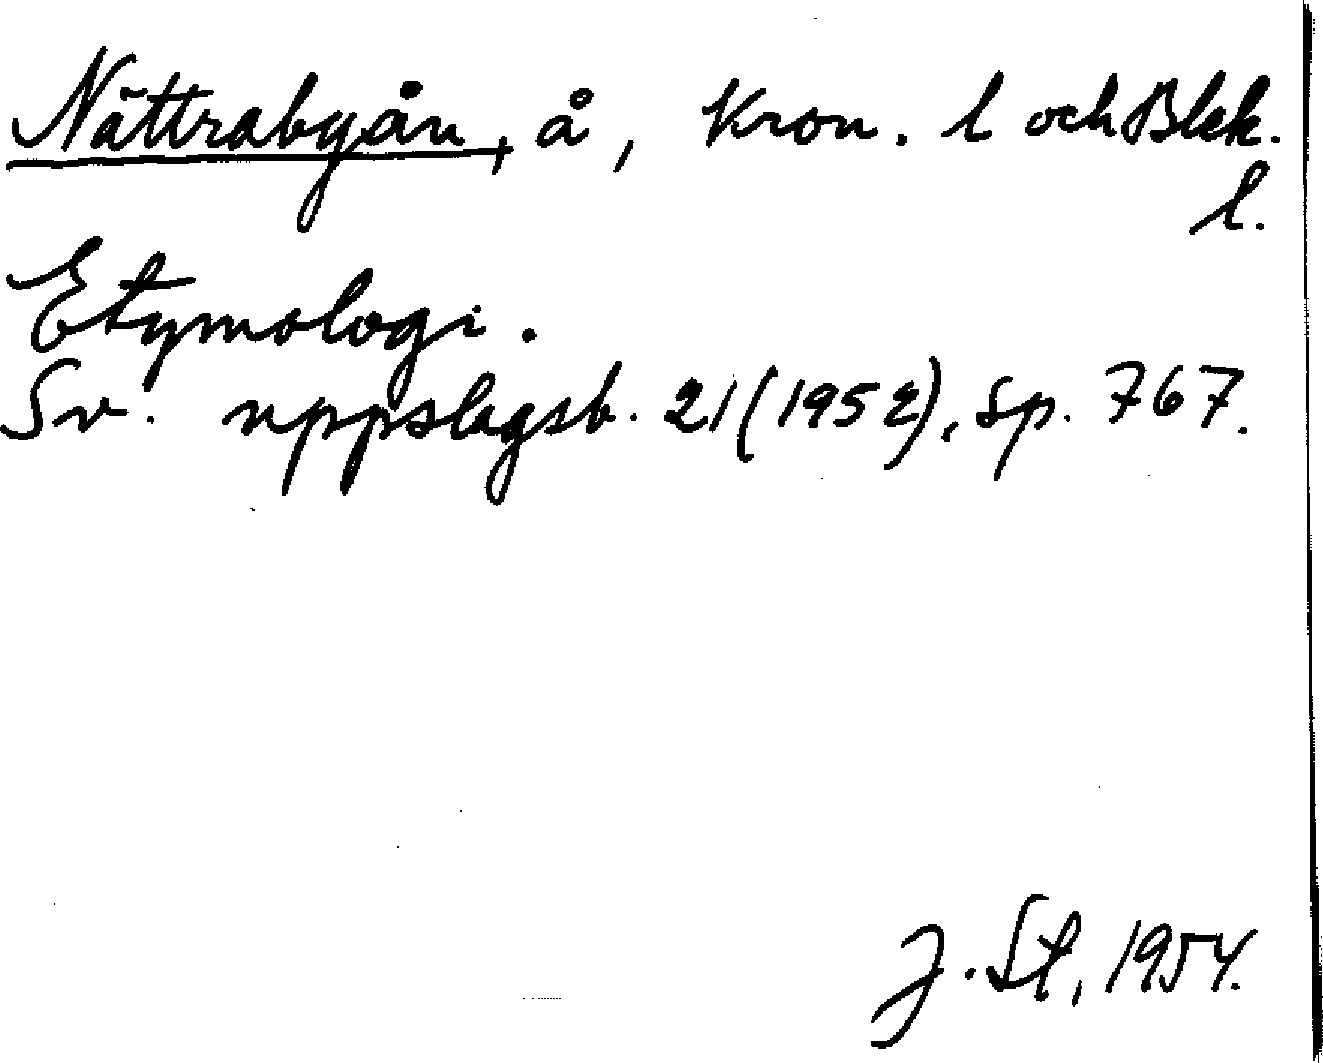 Nättrabyån, å, Kron. l och Blek.
l.
Etymologi.
Sv. uppslagsb. 21 (1952), sp. 767.
J. St, 1954.